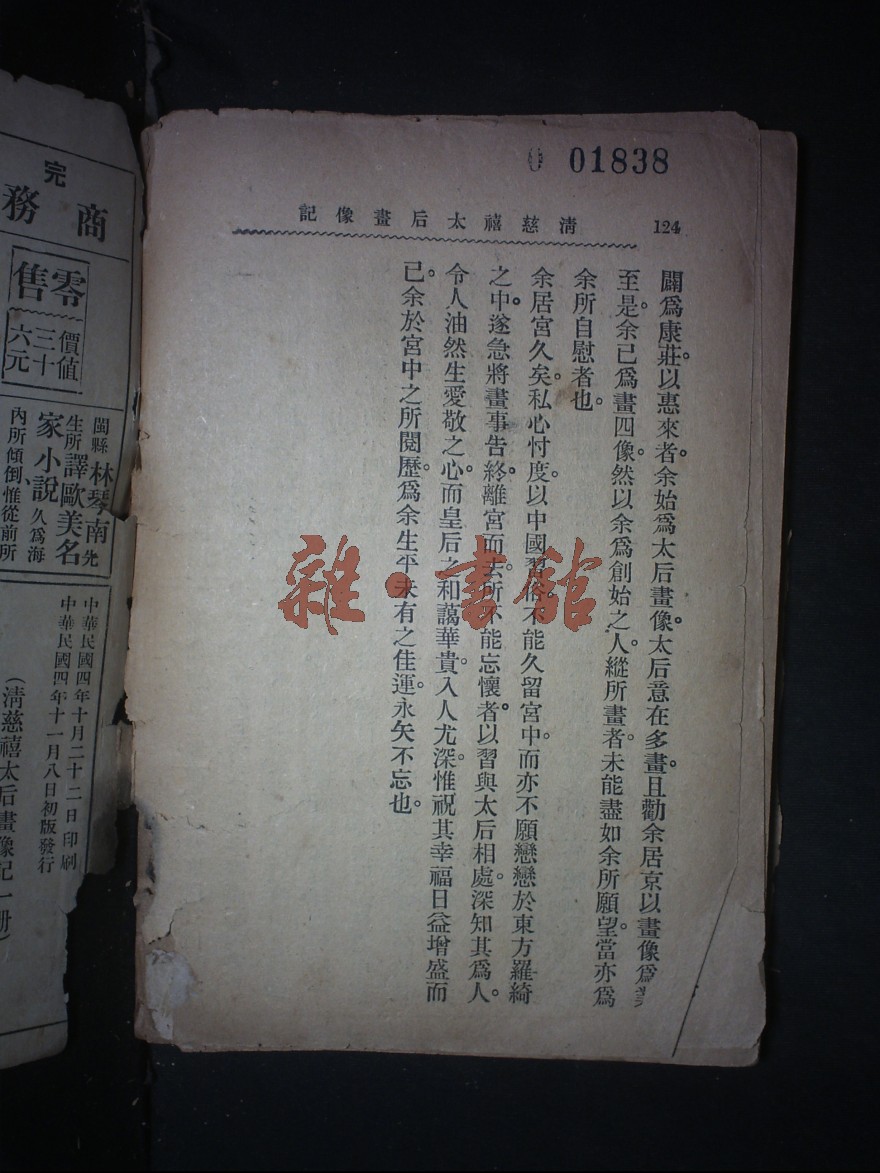 01838
124
清慈禧太后畫像記
闢爲康莊。以惠來者。余始爲太后畫像。太后意在多畫。且勸余居京以畫像爲業
至是。余已爲畫四像。然以余爲創始之人。縱所畫者。未能盡如余所願望。當亦爲
余所自慰者也。
余居宮久矣。私心忖度。以中國習俗。不能久留宮中。而亦不願戀戀於東方羅綺
之中。遂急將畫事告終。離宮而去。所不能忘懷者。以習與太后相處。深知其爲人。
令人油然生愛敬之心。而皇后之和藹華貴。入人尤深。惟祝其幸福日益增盛而
已。余於宮中之所閱歷。爲余生平未有之佳運。永矢不忘也。
雜·書館
完
商務
零售
價值三十六元
閩縣林琴南先
生所譯歐美名
家小說久爲海
內所傾倒惟從前所
中華民國四年十月二十二日印刷
中華民國四年十一月八日初版發行
(清慈禧太后畫像記一冊)